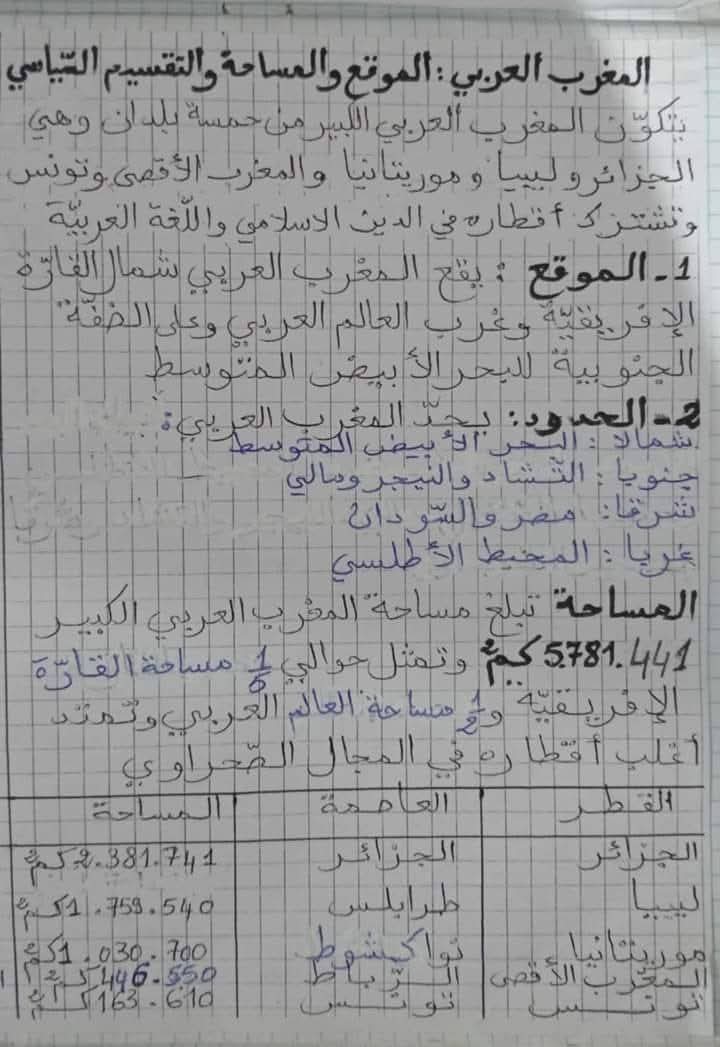 المغرب العربي: الموقع والمساحة والتقسيم السّياسي
يتكوّن المغرب العربي الكبير من خمسة بلدان وهي
الجزائر وليبيا وموريتانيا والمغرب الأقصى وتونس
وتشترك أقطاره في الدين الاسلامي واللّغة العربيّة
1- الموقع: يقع المغرب العربي شمال القارّة
الإفريقيّة وغرب العالم العربي وعلى الضفّة
الجنوبية للبحر الأبيض المتوسط
2- الحدود: يحدّ المغرب العربي:
شمالا: البحر الأبيض المتوسط
جنوبا: التّشاد والنيجر ومالي
شرقا: مصر والسّودان
غربا: المحيط الأطلسي
المساحة تبلغ مساحة المغرب العربي الكبير
5.781.441 كم² وتمثل حوالي 1/5 مساحة القارّة
الإفريقيّة و 1/2 مساحة العالم العربي وتمتد
أغلب أقطاره في المجال الصّحراوي
القطر العاصمة المساحة
الجزائر الجزائر 2.381.741 كم²
ليبيا طرابلس 1.759.540 كم²
موريتانيا نواكشوط 1.030.700 كم²
المغرب الأقصى الرّباط 446.550 كم²
تونس تونس 163.610 كم²